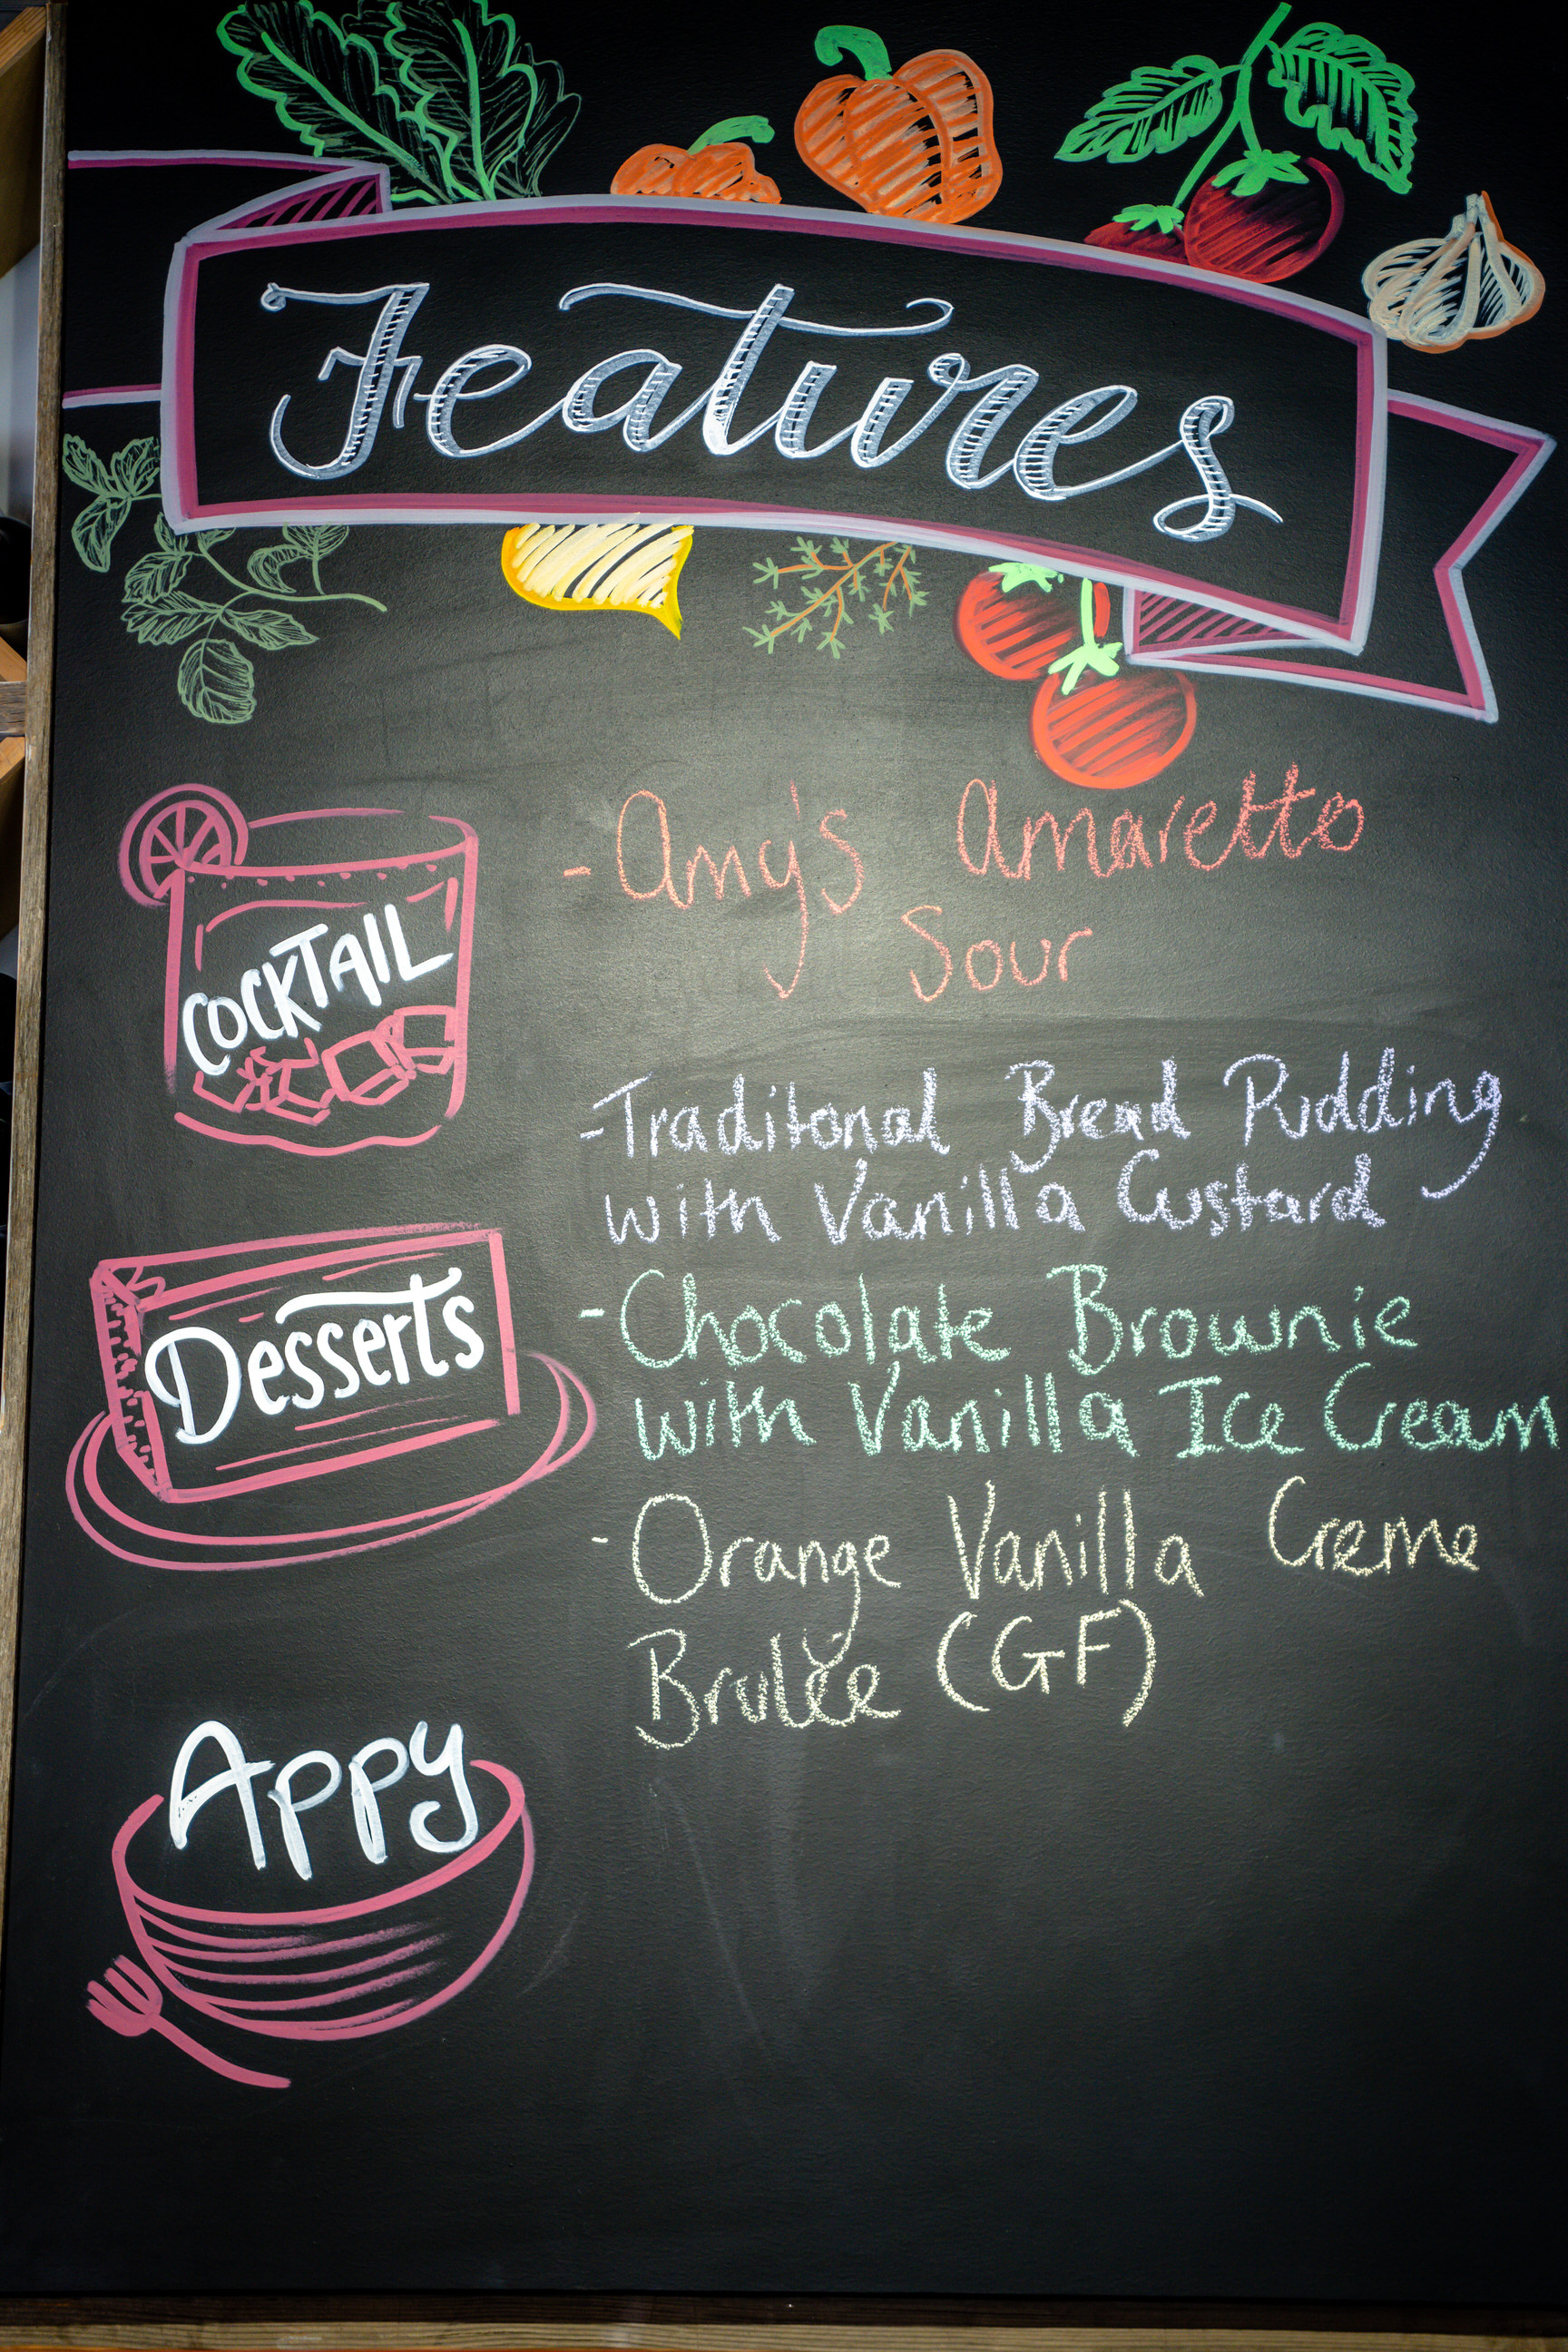 Features
COCKTAIL
- Amy's Amaretto
Sour
Desserts
- Traditonal Bread Pudding
with Vanilla Custard
- Chocolate Brownie
with Vanilla Ice Cream
- Orange Vanilla Creme
Brulée (GF)
Appy